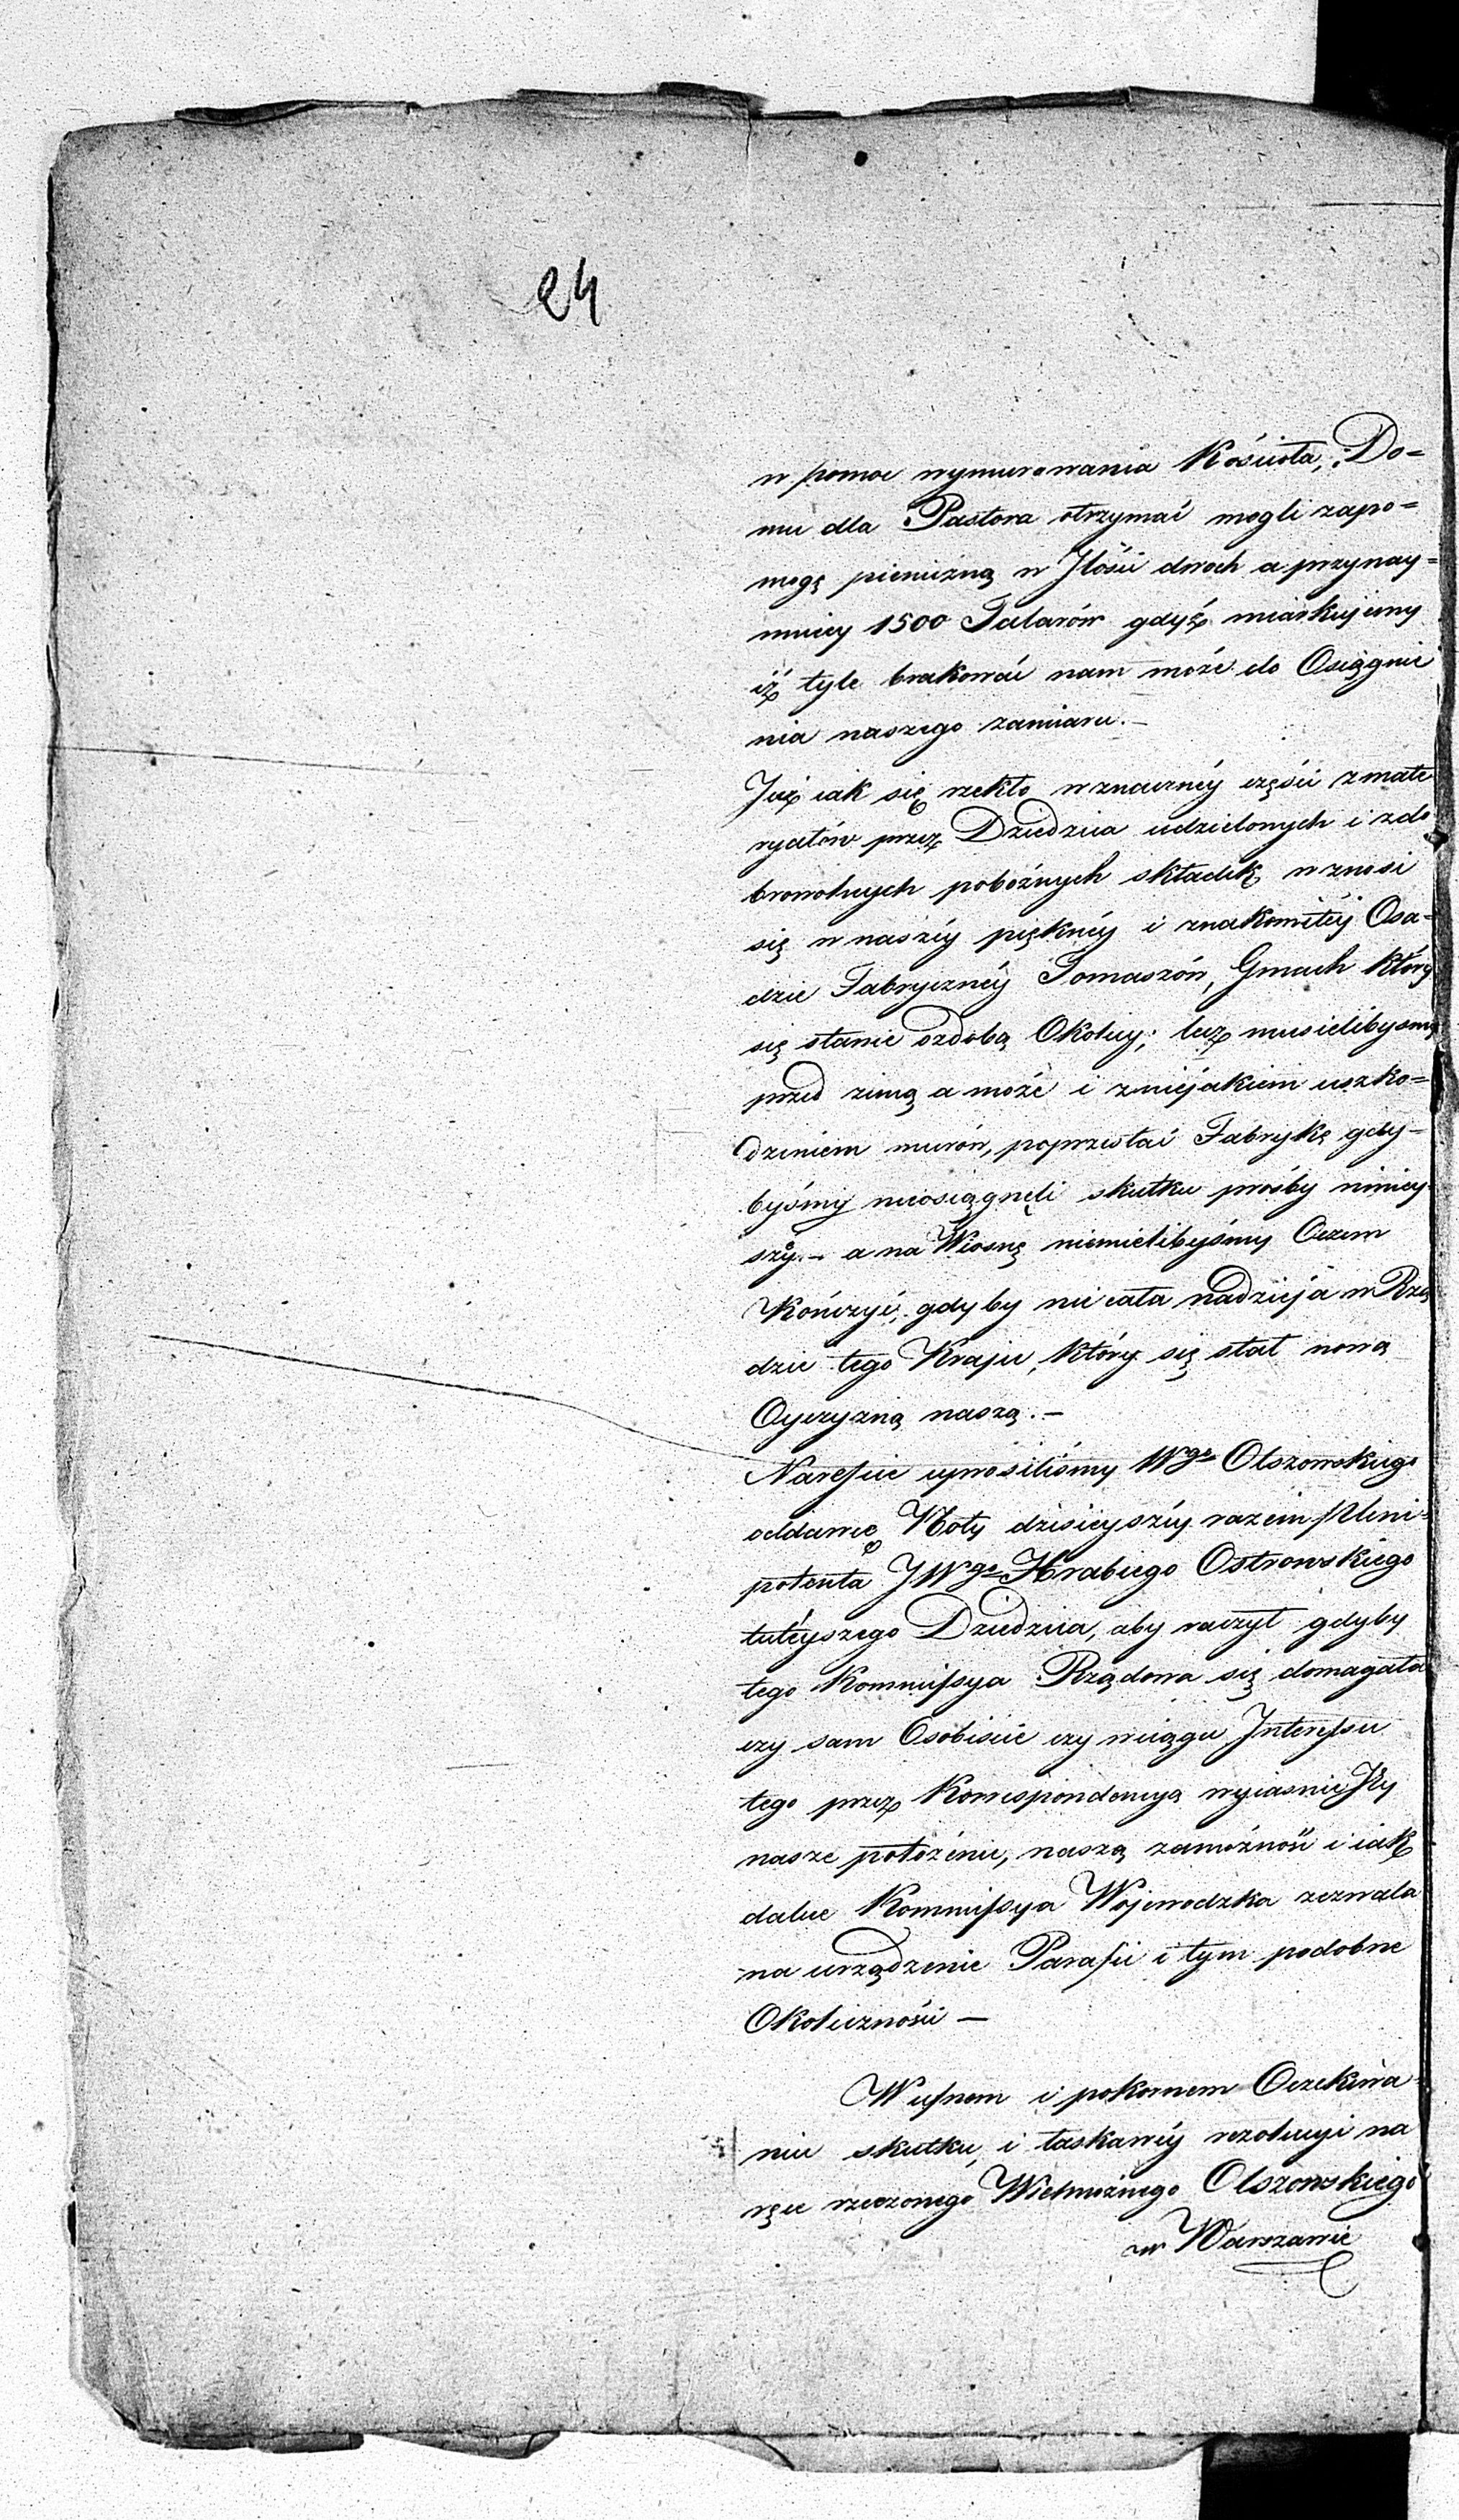 24
w pomoc wymurowania Kościoła, Do=
mu dla Pastora otrzymać mogli zapo=
mogę pieniężną w Jlości dwoch a przynay=
mniey 1500 Talarów gdyż miarkujemy
iż tyle brakować nam może do Osiągnie
nia naszego zamiaru.—
Już iak się rzekło w znaczney części z mate
ryałów przez Dziedzica udzielonych i z do
browolnych pobożnych składek wznosi
się w naszéy pięknéy i znakomitéy Osa=
dzie Fabrycznéy Tomaszów, Gmach który
się stanie ozdobą Okolicy; lecz musielibysmy
przed zimą a może i z niejakiem uszko=
dzeniem murów, poprzestać Fabrykę gdy=
byśmy nieosiągneli skutku prośby niniey=
széy.— a na Wiosnę niemielibyśmy Czem
Kończyć, gdyby nie cała nadzieja w Rzą
dzie tego Kraju, który się stał nową
Oyczyzną naszą.—
Nareszcie uprosiliśmy Wgo Olszowskiego
oddawcę Noty dzisieyszéy razem Pleni=
potenta JWgo Hrabiego Ostrowskiego
tutéyszego Dziedzica, aby raczył gdyby
tego Kommissya Rządowa się domagała
czy sam Osobiscie czy w ciągu Interessu
tego przez Korrespondencyą wyiasnić Jéy
nasze położenie, naszą zamożność i iak
dalece Kommissya Wojewodzka zezwala
na urządzenie Parafii i tym podobne
Okoliczności —
W ufnem i pokornem Oczekiwa=
niu skutku, i łaskawéy rezolucyi na
ręce rzeczonego Wielmożnego Olszowskiego
w Warszawie